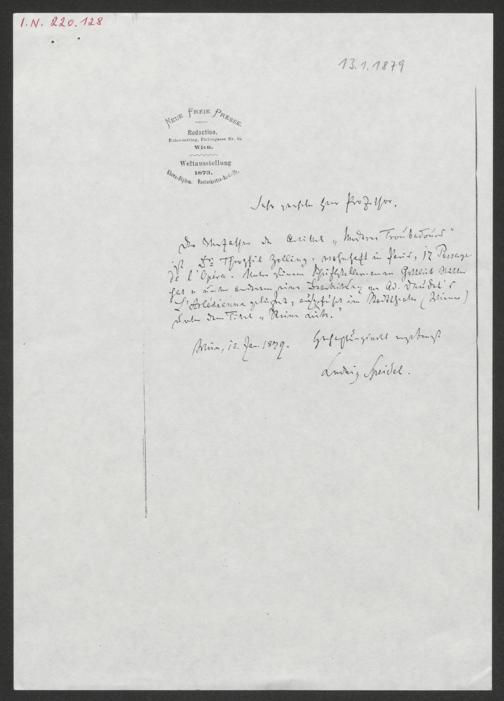 I.N. 220.128
13.1.1879
NEUE FREIE PRESSE.
Redaction,
Wien.
Weltausstellung
1873.
Sehr geehrter Herr Professor.
Der Verfasser der Artikel „Moderne Troubadours"
ist Dr. Theophil Zolling, wohnhaft in Paris, 17 Passage
de l'Opéra. Unter seinem Schriftstellernamen Gottlieb Ritter
hat er unter anderem eine Bearbeitung von Ad. Daudet's
L'Arlésienne geliefert, aufgeführt im Stadttheater (Wiener)
unter dem Titel „Neue Liebe."
Wien, 13. Jan. 1879.
Hochachtungsvoll ergebenst
Ludwig Speidel.